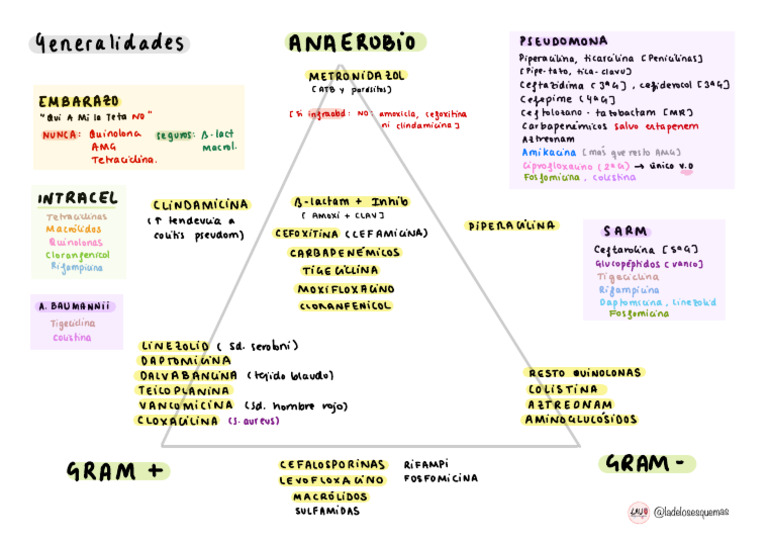 Generalidades
ANAEROBIO
METRONIDAZOL
(ATB y parásitos)
[Si infraabd: NO: amoxicla, cefoxitina
ni clindamicina]
PSEUDOMONA
Piperacilina, ticarcilina [Penicilinas]
[Pipe-tazo, tica-clavu]
Ceftazidima (3ªG), cefiderocol [3ªG]
Cefepime (4ªG)
Ceftolozano - tazobactam [MR]
Carbapenémicos salvo ertapenem
Aztreonam
Amikacina (más que resto AMG)
Ciprofloxacino (2ªG) → único V.O
Fosfomicina, colistina
EMBARAZO
"Qui A Mi la Teta NO"
NUNCA: Quinolona
AMG
Tetraciclina.
seguros: ß-lact
macrol.
INTRACEL
Tetraciclinas
Macrólidos
Quinolonas
Cloranfenicol
Rifampicina
CLINDAMICINA
(↑ tendencia a
colitis pseudom)
ß-lactam + Inhib
(AMOXI + CLAV)
CEFOXITINA (CEFAMICINA)
CARBAPENÉMICOS
TIGECICLINA
MOXIFLOXACINO
CLORANFENICOL
PIPERACILINA
SARM
Ceftarolina [5ªG]
Glucopéptidos [vanco]
Tigeciclina
Rifampicina
Daptomicina, linezolid
Fosfomicina
A. BAUMANNII
Tigeciclina
Colistina
LINEZOLID (sd. serotoni)
DAPTOMICINA
DALVABANCINA (tejido blando)
TEICOPLANINA
VANCOMICINA (sd. hombre rojo)
CLOXACILINA (s. aureus)
RESTO QUINOLONAS
COLISTINA
AZTREONAM
AMINOGLUCÓSIDOS
GRAM +
GRAM -
CEFALOSPORINAS
LEVOFLOXACINO
MACRÓLIDOS
SULFAMIDAS
RIFAMPI
FOSFOMICINA
@ladelosesquemas